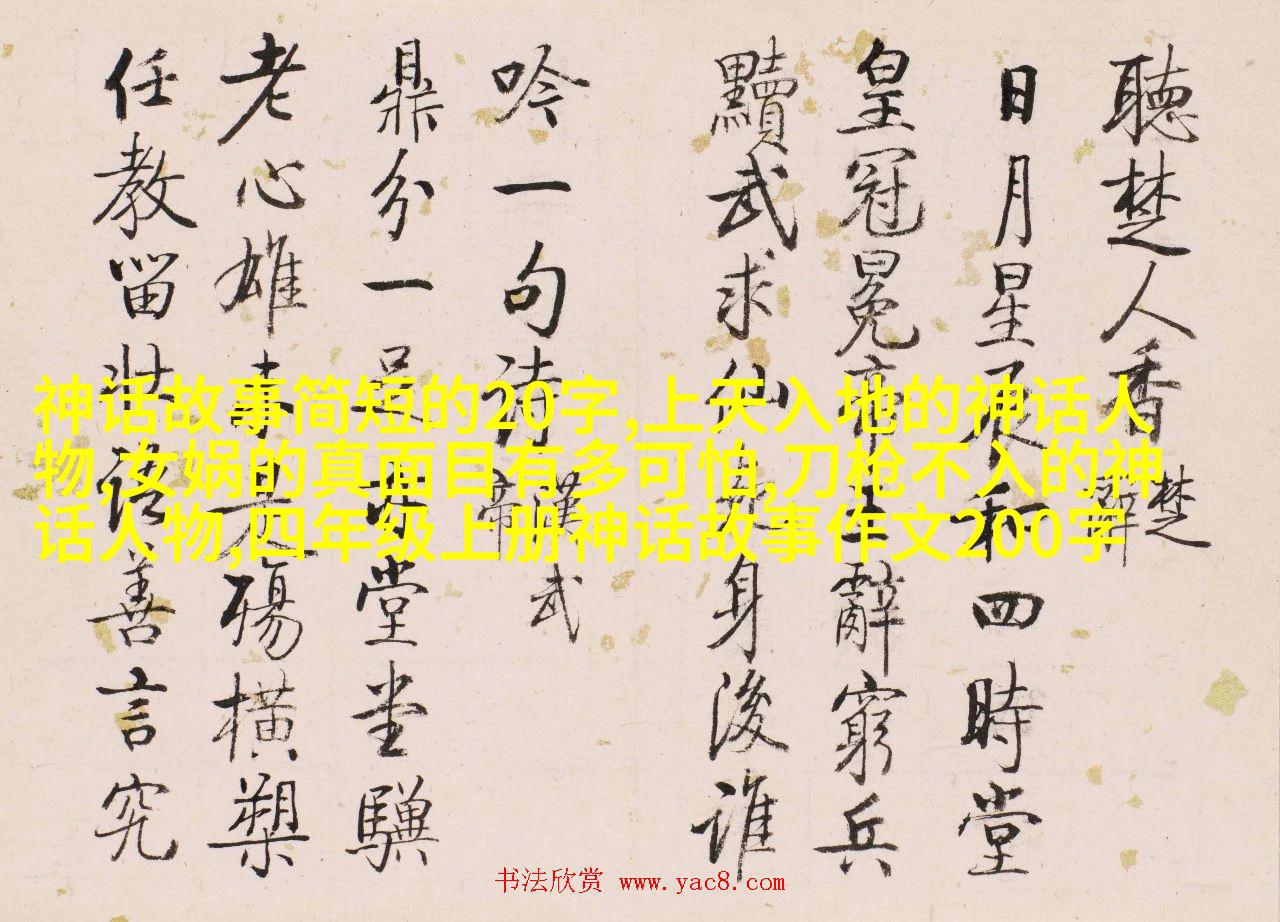 聽楚人香 楚辭
日月星辰和四時堂
皇冠冕帝王辭窮兵
黷武求仙身後誰
吟一句詩 漢武帝
鼎分一足亦堂堂驥
老心雄未是殤橫槊
任教留壯語善言究
神话故事简短的20字,上天入地的神话人
物,女娲的真面目有多可怕,刀枪不入的神
话人物,四年级上册神话故事作文200字
书法欣赏 www.yac8.com